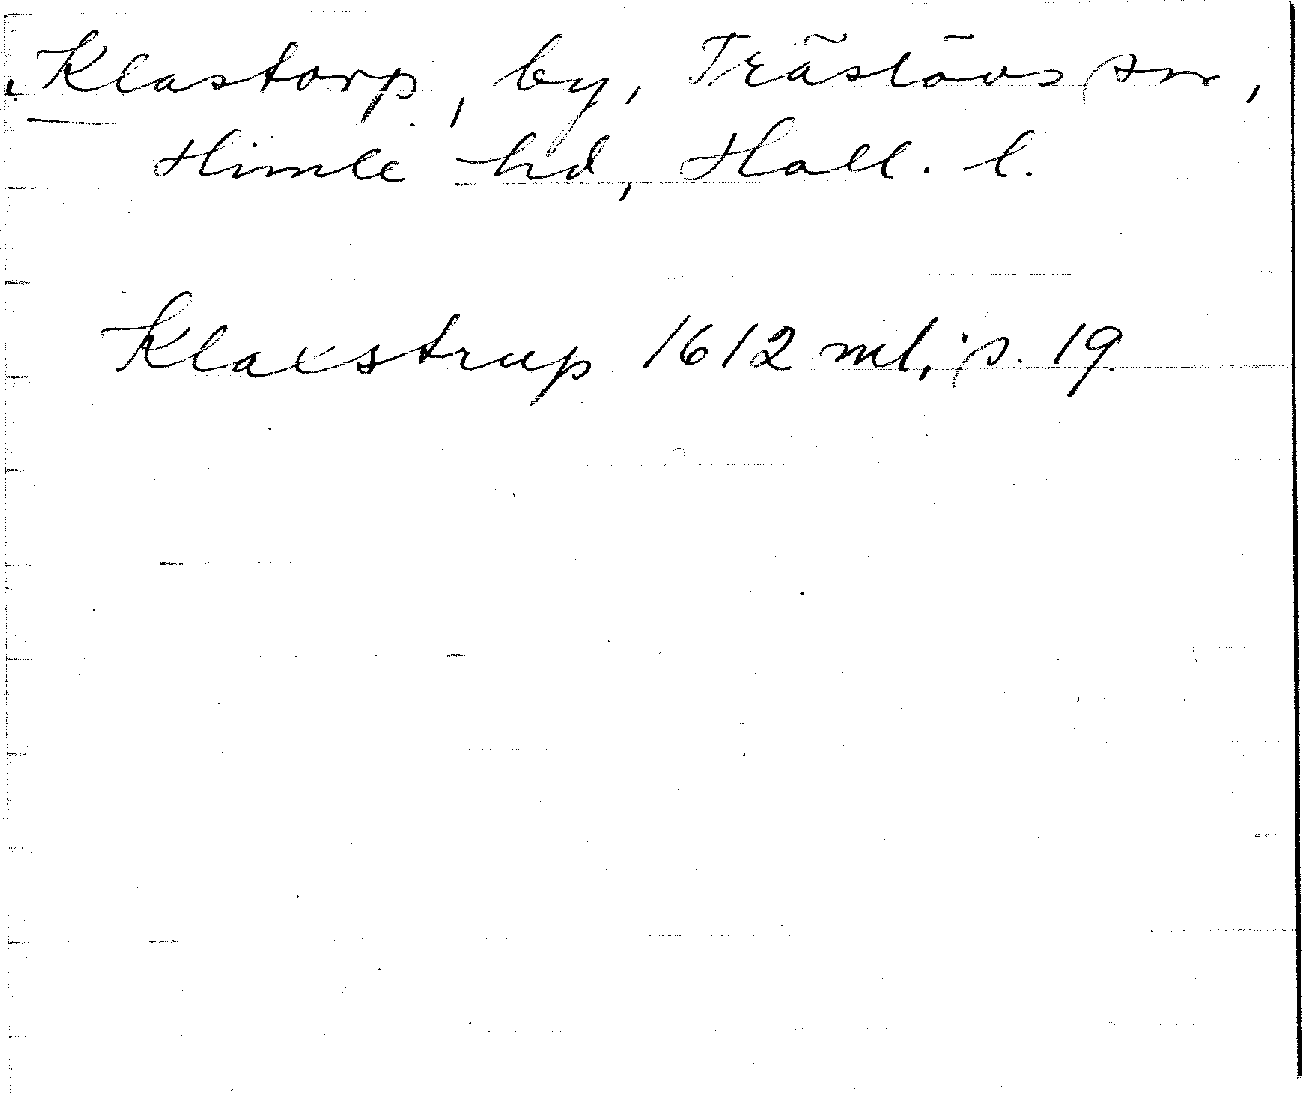 Klastorp, by, Träslövs sn,
Himle hd, Hall. l.
Klaestrup 1612 ml, s. 19.